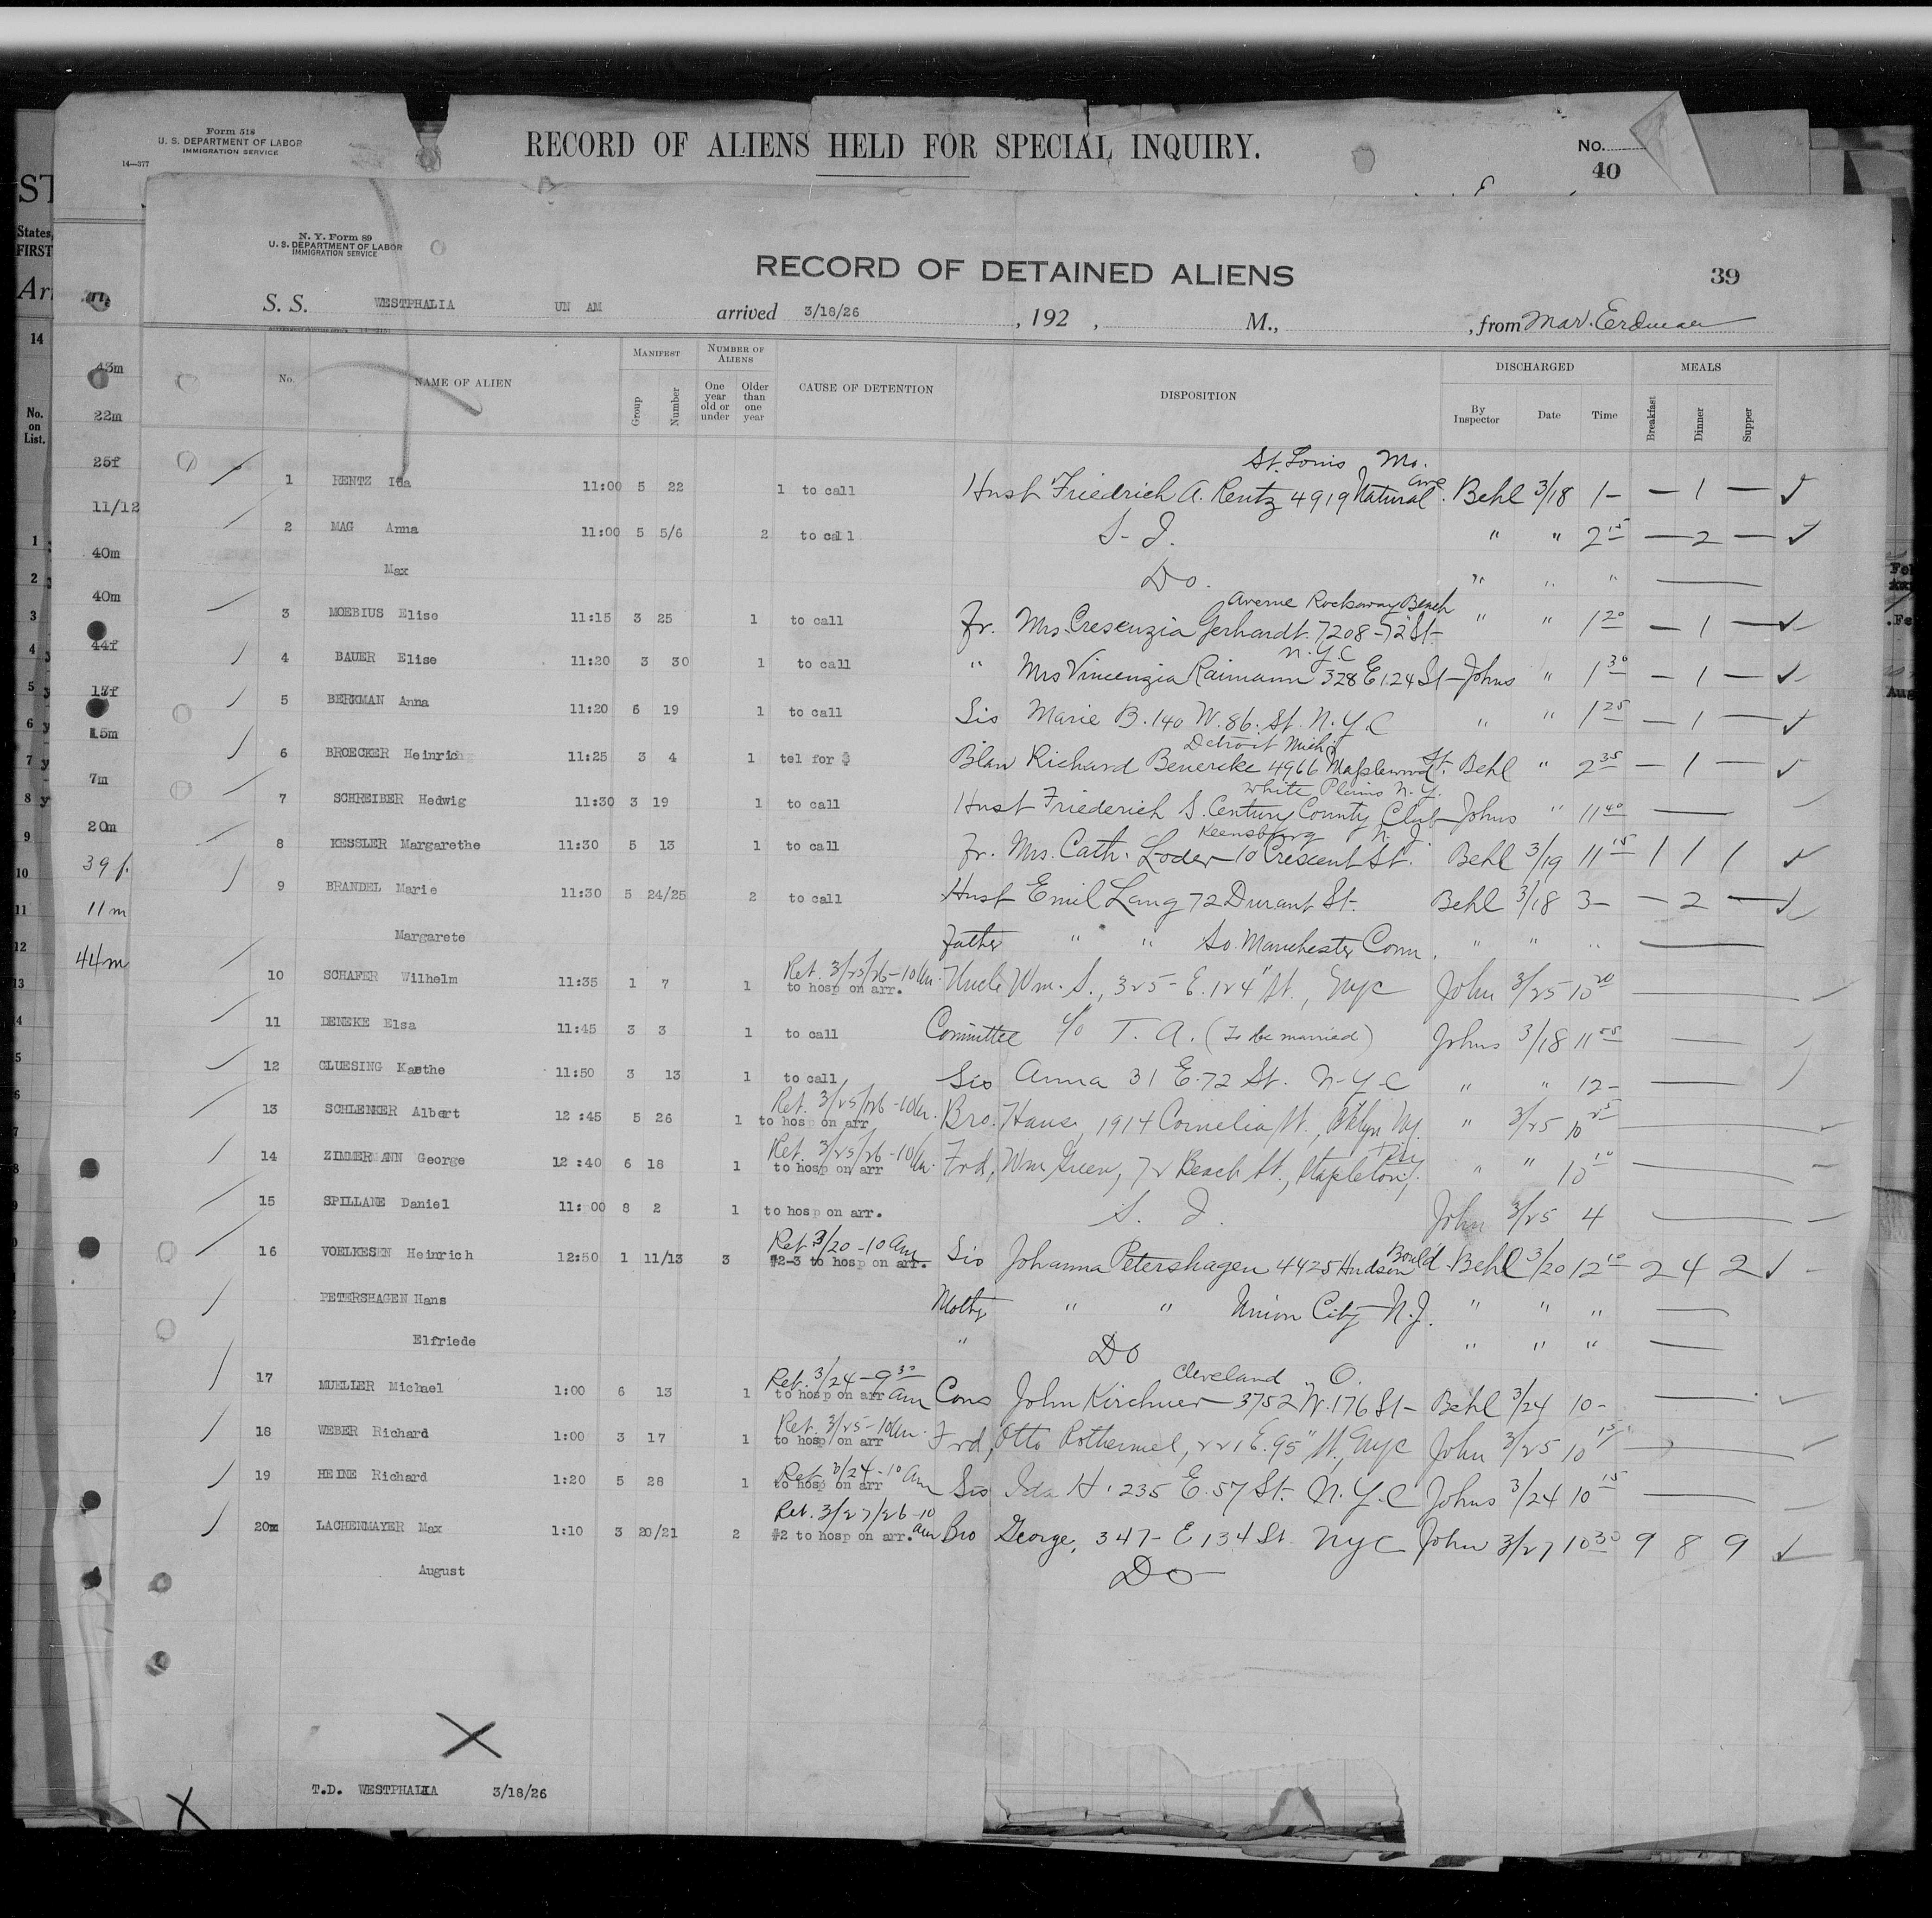 Form 518
U. S. DEPARTMENT OF LABOR
IMMIGRATION SERVICE
14—377
RECORD OF ALIENS HELD FOR SPECIAL INQUIRY.
No.
40
ST
States,
FIRST
Ar
14
No.
on
List.
43m
22m
25f
11/12
40m
40m
44f
17f
15m
7m
20m
39 f.
11 m
44m
N. Y. Form 89
U. S. DEPARTMENT OF LABOR
IMMIGRATION SERVICE
RECORD OF DETAINED ALIENS
39
S. S. WESTPHALIA UN AM arrived 3/18/26, 192 , M., , from Mar. Erdman
No. NAME OF ALIEN MANIFEST Group Number NUMBER OF ALIENS One year old or under Older than one year CAUSE OF DETENTION DISPOSITION DISCHARGED By Inspector Date Time MEALS Breakfast Dinner Supper
St. Louis Mo.
1 RENTZ Ida 11:00 5 22 1 to call Husb Friedrich A. Rentz 4919 Natural Ave. Behl 3/18 1- — 1 — ✓
2 MAG Anna 11:00 5 5/6 2 to call S. I. " " 2 15 — 2 — ✓
Max Do. " " "
Averne Rockaway Beach
3 MOEBIUS Elise 11:15 3 25 1 to call Fr. Mrs. Cresenzia Gerhardt. 7208-72 St- " " 1 20 — 1 — ✓
N.Y.C
4 BAUER Elise 11:20 3 30 1 to call " Mrs Vincenzia Raimann 328 E 124 St- Johns " 1 30 — 1 — ✓
5 BERKMAN Anna 11:20 6 19 1 to call Sis Marie B. 140 W. 86. St. N.Y.C " " 1 25 — 1 — ✓
Detroit Mich.
6 BROECKER Heinrich 11:25 3 4 1 tel for $ Blaw Richard Benerske 4966 Maplewood St. Behl " 2 35 — 1 — ✓
White Plains N.Y.
7 SCHREIBER Hedwig 11:30 3 19 1 to call Husb Friederich S. Century County Club- Johns " 11 40 —
Keensburg N.J.
8 KESSLER Margarethe 11:30 5 13 1 to call Fr. Mrs. Cath. Loder- 10 Crescent St. Behl 3/19 11 15 1 1 1 ✓
9 BRANDEL Marie 11:30 5 24/25 2 to call Husb Emil Lang 72 Durant St. Behl 3/18 3- — 2 — ✓
Margarete Father " " So. Manchester Conn. " " "
Ret. 3/25/26-10 Am.
10 SCHAFER Wilhelm 11:35 1 7 1 to hosp on arr. Uncle Wm. S., 325- E. 124" St., NYC John 3/25 10 20
11 DENEKE Elsa 11:45 3 3 1 to call Committee c/o T. A. (To be married) Johns 3/18 11 55
12 GLUESING Kaethe 11:50 3 13 1 to call Sis Anna 31 E. 72 St. N-Y-C " " 12-
Ret. 3/25/26-10 Am.
13 SCHLENKER Albert 12:45 5 26 1 to hosp on arr Bro. Hans, 1914 Cornelia St., Bklyn NY. " 3/25 10 25
Ret. 3/25/26-10 Am.
14 ZIMMERMANN George 12:40 6 18 1 to hosp on arr Frd, Wm Green, 72 Beach St., Stapleton, " " 10 10
15 SPILLANE Daniel 11:00 8 2 1 to hosp on arr. S. I. John 3/25 4
Ret 3/20-10 Am
16 VOELKESEN Heinrich 12:50 1 11/13 3 #2-3 to hosp on arr. Sis Johanna Petershagen 4425 Hudson Bould. Behl 3/20 12 10 2 4 2 ✓
PETERSHAGEN Hans Mother " " Union City N.J. " " "
Elfriede " Do " " "
Ret. 3/24-9 30 Am Cleveland, O.
17 MUELLER Michael 1:00 6 13 1 to hosp on arr Cous John Kirchner- 3752 W. 176 St- Behl 3/24 10-
Ret. 3/25-10 Am.
18 WEBER Richard 1:00 3 17 1 to hosp on arr Frd, Otto Rothermel, 221 E. 95" St., NYC John 3/25 10 15
Ret. 3/24-10 Am
19 HEINE Richard 1:20 5 28 1 to hosp on arr Sis Ida H. 235 E. 57 St. N.Y.C Johns 3/24 10 15
Ret. 3/27/26-10 Am
20m LACHENMAYER Max 1:10 3 20/21 2 #2 to hosp on arr. Bro George, 347- E 134 St. NYC John 3/27 10 30 9 8 9 ✓
August Do
T.D. WESTPHALIA 3/18/26